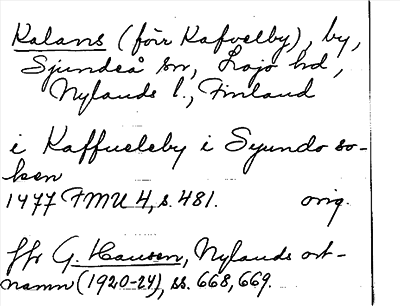 Kalans (förr Kafvelby), by,
Sjundeå sn, Lojo hd,
Nylands l., Finland
i Kaffueleby i Syundo so-
ken
1477 FMU 4, s. 481. orig.
ffr G. Hausen, Nylands ort-
namn (1920-24), ss. 668, 669.